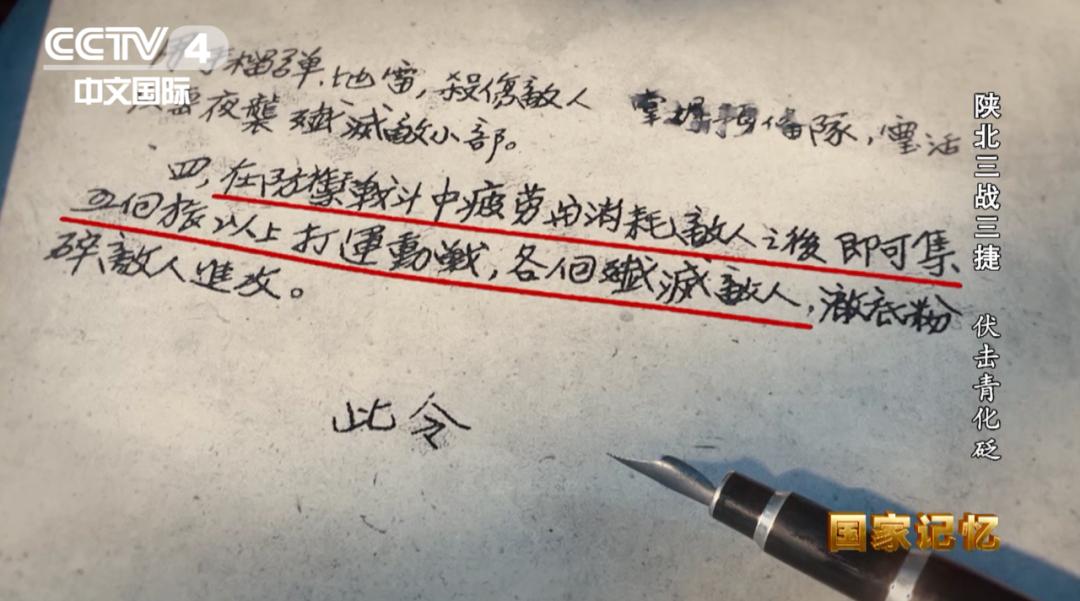 CCTV 4
中文国际
手榴弹、地雷，殺傷敵人 掌握預備隊，靈活
夜襲 殲滅敵小部。
四，在防禦戰斗中疲劳与消耗敵人之後 即可集
五個旅以上打運動戰，各個殲滅敵人，澈底粉
碎敵人進攻。
此令
陕北三战三捷 伏击青化砭
国家记忆